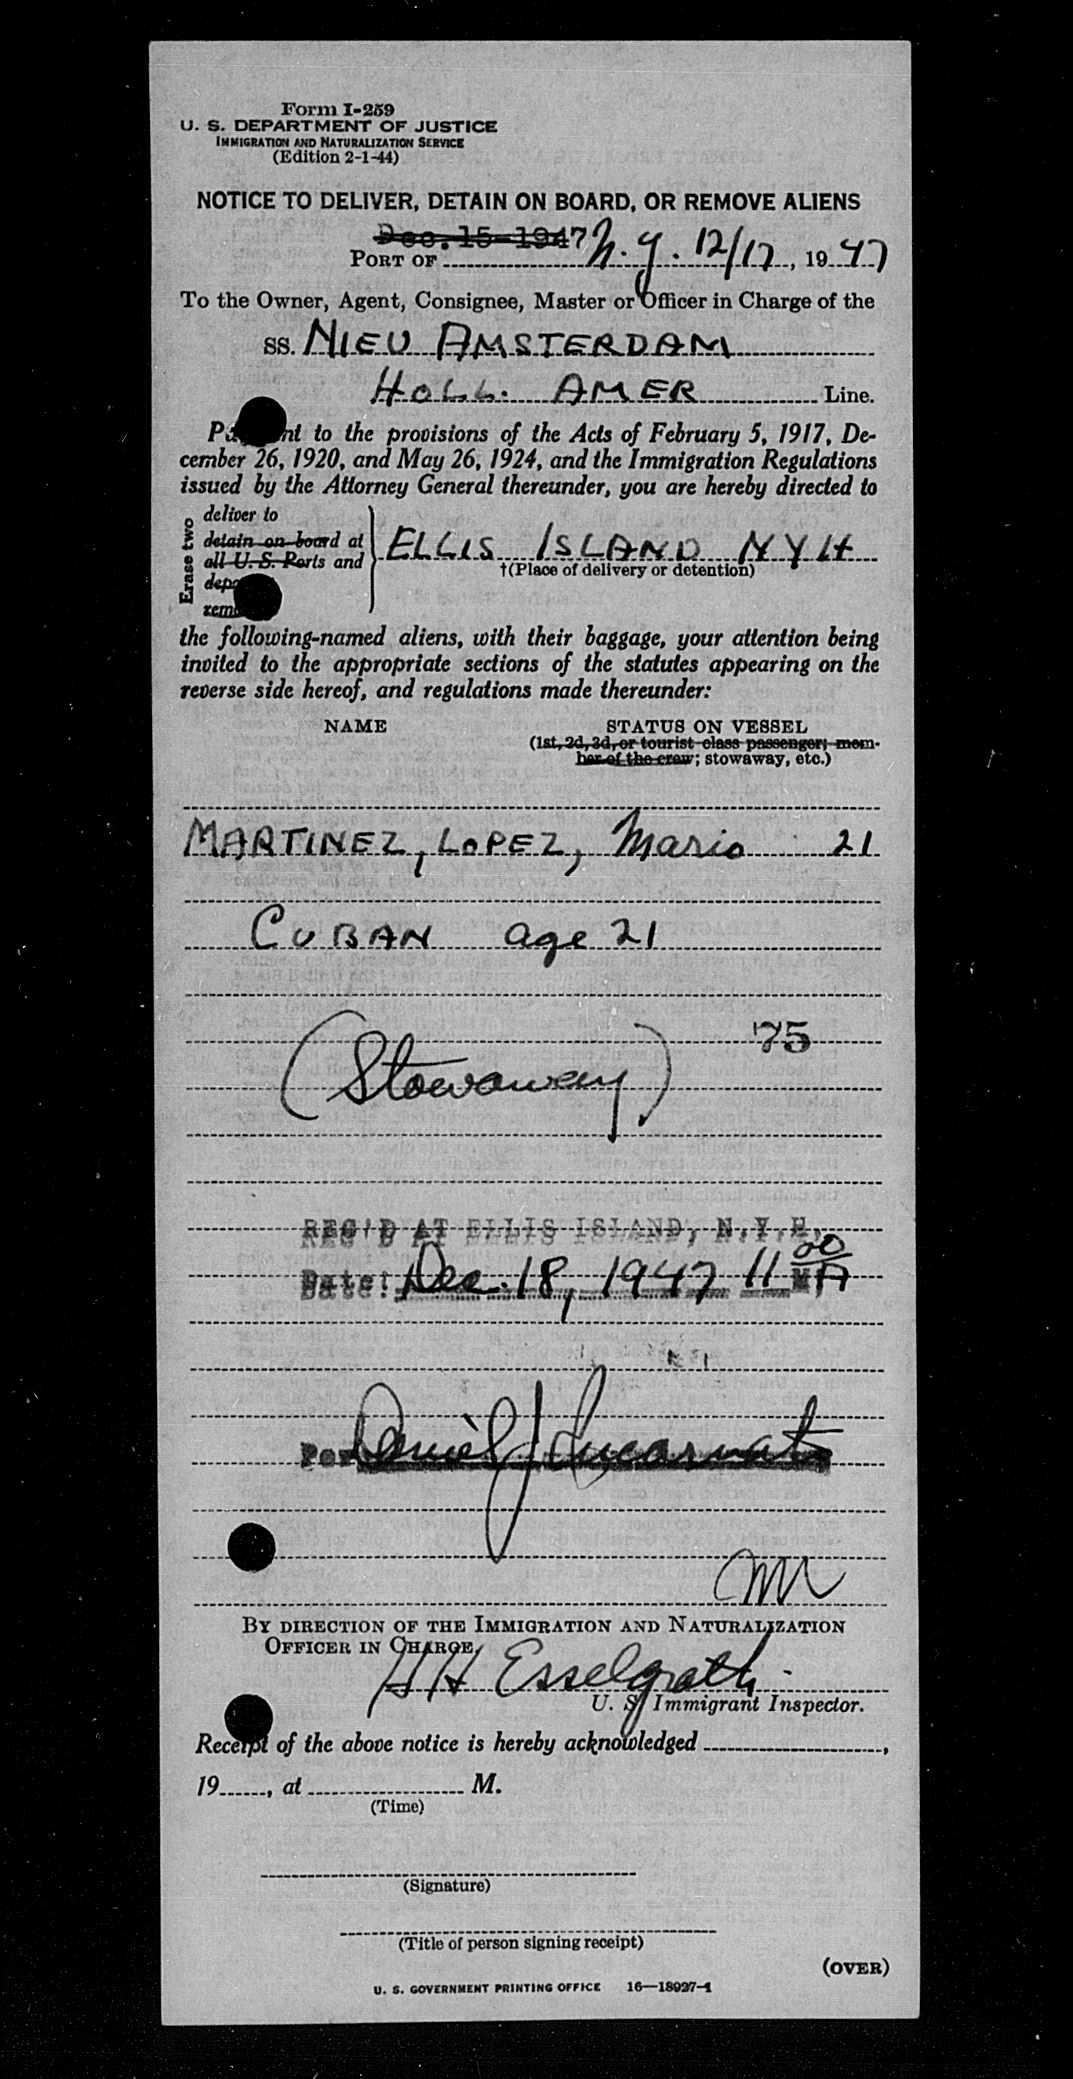 Form I-259
U. S. DEPARTMENT OF JUSTICE
IMMIGRATION AND NATURALIZATION SERVICE
(Edition 2-1-44)
NOTICE TO DELIVER, DETAIN ON BOARD, OR REMOVE ALIENS
Dec. 15 1947
PORT OF N.Y. 12/17, 1947
To the Owner, Agent, Consignee, Master or Officer in Charge of the
SS. NIEU AMSTERDAM
HOLL. AMER Line.
to the provisions of the Acts of February 5, 1917, De-
cember 26, 1920, and May 26, 1924, and the Immigration Regulations
issued by the Attorney General thereunder, you are hereby directed to
Erase two
deliver to
detain on board at
all U. S. Ports and
ELLIS ISLAND NYH
†(Place of delivery or detention)
the following-named aliens, with their baggage, your attention being
invited to the appropriate sections of the statutes appearing on the
reverse side hereof, and regulations made thereunder:
NAME STATUS ON VESSEL
(1st, 2d, 3d, or tourist class passenger; mem-
ber of the crew; stowaway, etc.)
MARTINEZ, LOPEZ, Mario 21
CUBAN age 21
75
(Stowaway)
REC'D AT ELLIS ISLAND, N.Y.H.
Date: Dec. 18, 1947 11 00 A M
Per Daniel J
BY DIRECTION OF THE IMMIGRATION AND NATURALIZATION
OFFICER IN CHARGE,
H H Esselgrath
U. S. Immigrant Inspector.
Receipt of the above notice is hereby acknowledged ,
19 , at M.
(Time)
(Signature)
(Title of person signing receipt)
(OVER)
U. S. GOVERNMENT PRINTING OFFICE 16—18927-1